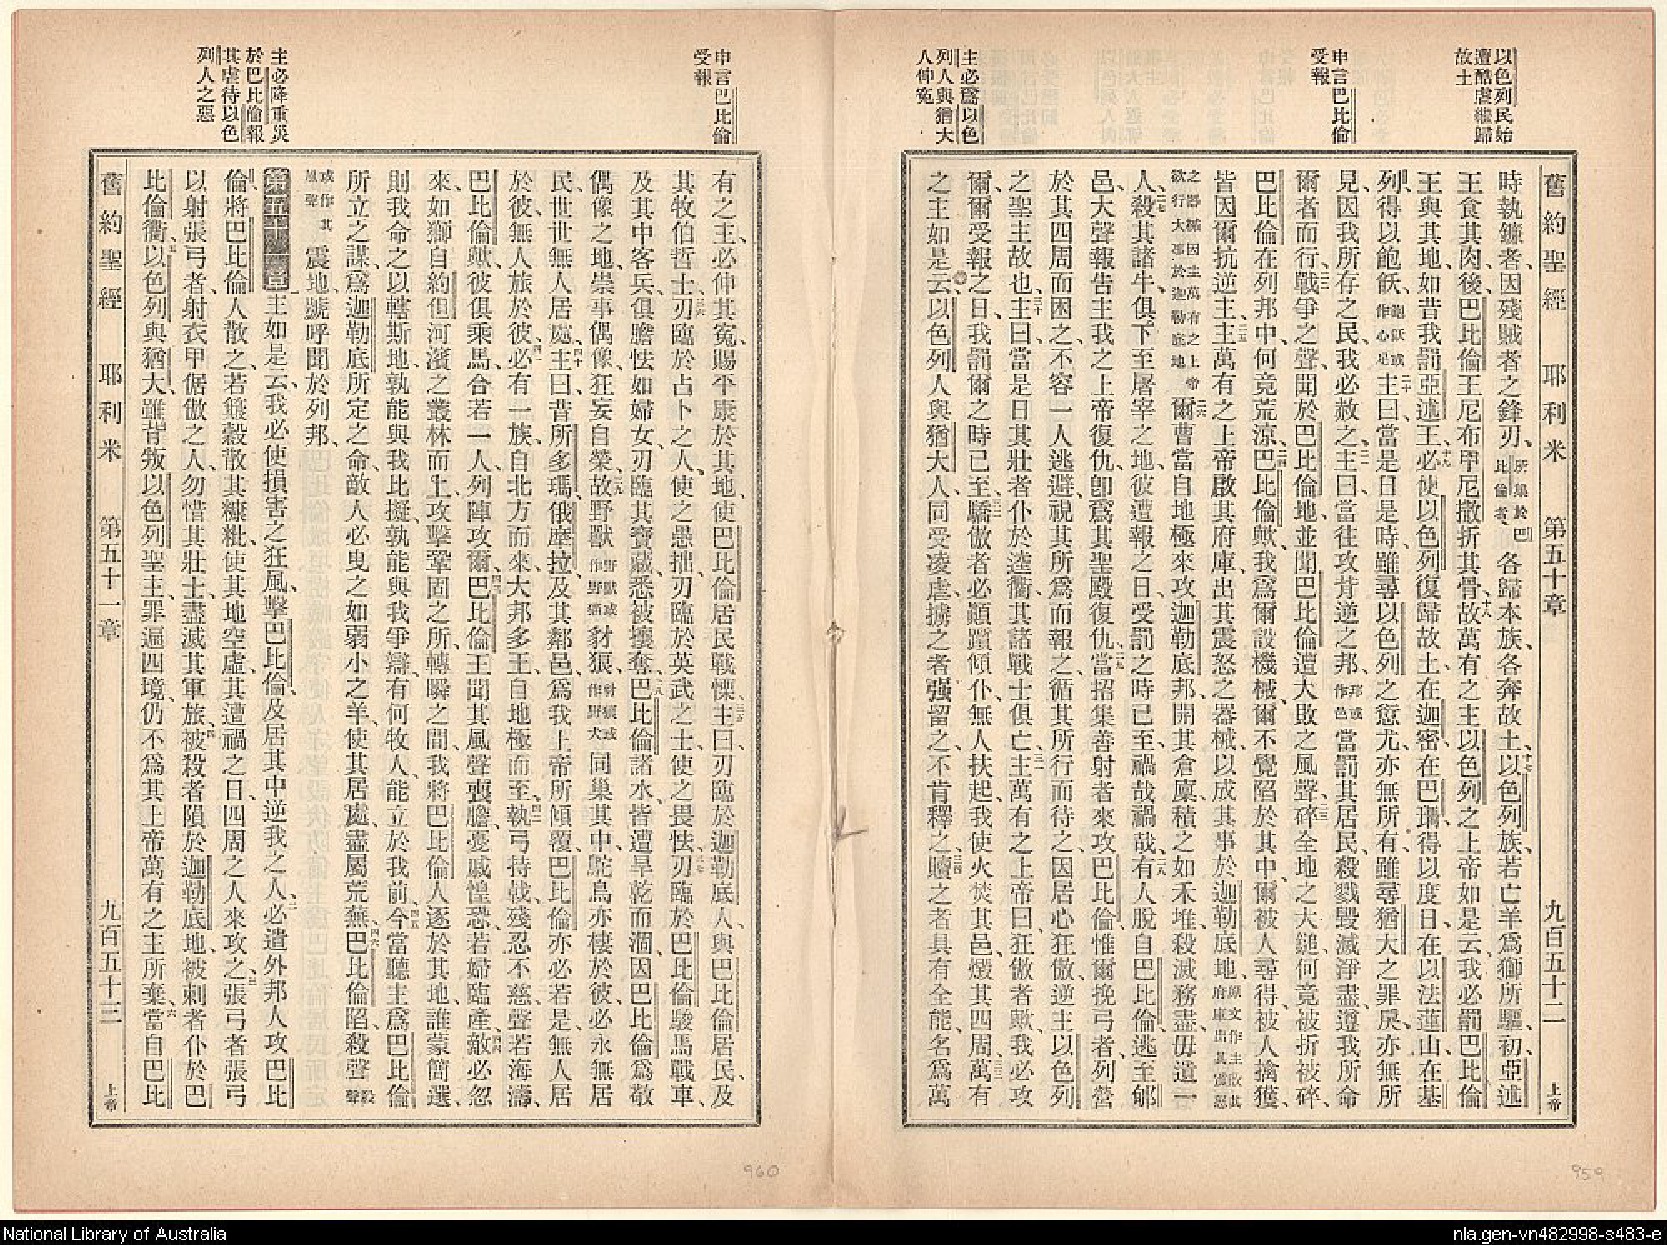 以色列民始
遭酷虐繼歸
故土
申言巴比倫
受報
主必爲以色
列人與猶大
人伸寃
舊約聖經 耶利米 第五十章 九百五十二 上帝
時執鐮者因殘賊者之鋒刃所興於巴比倫者各歸本族各奔故土十七以色列族若亡羊爲獅所驅初亞述
王食其肉後巴比倫王尼布甲尼撒折其骨十八故萬有之主以色列之上帝如是云我必罰巴比倫
王與其地如昔我罰亞述王十九必使以色列復歸故土在迦密在巴珊得以度日在以法蓮山在基
列得以飽飫飽飫或作心足二十主曰當是日是時雖尋以色列之愆尤亦無所有雖尋猶大之罪戾亦無所
見因我所存之民我必赦之二一主曰當往攻背逆之邦邦或作邑當罰其居民殺戮毀滅淨盡遵我所命
爾者而行二二戰爭之聲聞於巴比倫地並聞巴比倫遭大敗之風聲二三碎全地之大鎚何竟被折被碎
巴比倫在列邦中何竟荒涼二四巴比倫歟我爲爾設機械爾不覺陷於其中爾被人尋得被人擒獲
皆因爾抗逆主二五主萬有之上帝啟其府庫出其震怒之器械以成其事於迦勒底地原文作主啟其府庫出其震怒
之器械因主萬有之上帝欲行大事於迦勒底地二六爾曹當自地極來攻迦勒底邦開其倉廩積之如禾堆殺滅務盡毋遺一
人二七殺其諸牛俱下至屠宰之地彼遭報之日受罰之時已至禍哉禍哉二八有人脫自巴比倫逃至郇
邑大聲報告主我之上帝復仇卽爲其聖殿復仇二九當招集善射者來攻巴比倫惟爾挽弓者列營
於其四周而困之不容一人逃避視其所爲而報之循其所行而待之因居心狂傲逆主以色列
之聖主故也三十主曰當是日其壯者仆於逵衢其諸戰士俱亡三一主萬有之上帝曰狂傲者歟我必攻
爾爾受報之日我罰爾之時已至三二驕傲者必顚躓傾仆無人扶起我使火焚其邑燬其四周三三萬有
之主如是云以色列人與猶大人同受凌虐擄之者强留之不肯釋之三四贖之者具有全能名爲萬
959
申言巴比倫
受報
主必降重災
於巴比倫報
其虐待以色
列人之惡
有之主必伸其寃賜平康於其地使巴比倫居民戰慄三五主曰刃臨於迦勒底人與巴比倫居民及
其牧伯哲士三六刃臨於占卜之人使之愚拙刃臨於英武之士使之畏怯三七刃臨於巴比倫駿馬戰車
及其中客兵俱膽怯如婦女刃臨其寶藏悉被攘奪三八巴比倫諸水皆遭旱乾而涸因巴比倫爲敬
偶像之地崇事偶像狂妄自榮三九故野獸野獸或作野貓豺狼豺狼或作野犬同巢其中鴕鳥亦棲於彼必永無居
民世世無人居處四十主曰昔所多瑪俄摩拉及其鄰邑爲我上帝所傾覆巴比倫亦必若是無人居
於彼無人旅於彼四一必有一族自北方而來大邦多王自地極而至四二執弓持戟殘忍不慈聲若海濤
巴比倫歟彼俱乘馬合若一人列陣攻爾四三巴比倫王聞其風聲喪膽憂戚惶恐若婦臨產四四敵必忽
來如獅自約但河濱之叢林而上攻擊鞏固之所轉瞬之間我將巴比倫人逐於其地誰蒙簡選
則我命之以轄斯地孰能與我比擬孰能與我爭辯有何牧人能立於我前四五今當聽主爲巴比倫
所立之謀爲迦勒底所定之命敵人必曳之如弱小之羊使其居處盡屬荒蕪四六巴比倫陷殺聲殺聲
或作其風聲震地號呼聞於列邦
第五十一章一主如是云我必使損害之狂風擊巴比倫及居其中逆我之人二必遣外邦人攻巴比
倫將巴比倫人散之若簸穀散其糠粃使其地空虛其遭禍之日四周之人來攻之三張弓者張弓
以射張弓者射衣甲倨傲之人勿惜其壯士盡滅其軍旅四被殺者隕於迦勒底地被刺者仆於巴
比倫衢五以色列與猶大雖背叛以色列聖主罪遍四境仍不爲其上帝萬有之主所棄六當自巴比
舊約聖經 耶利米 第五十一章 九百五十三 上帝
960
National Library of Australia
nla.gen-vn482998-s483-e